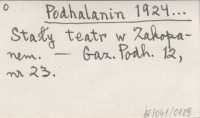 Podhalanin 1924...
Stały teatr w Zakopa-
nem. — Gaz. Podh. 12,
nr 23.